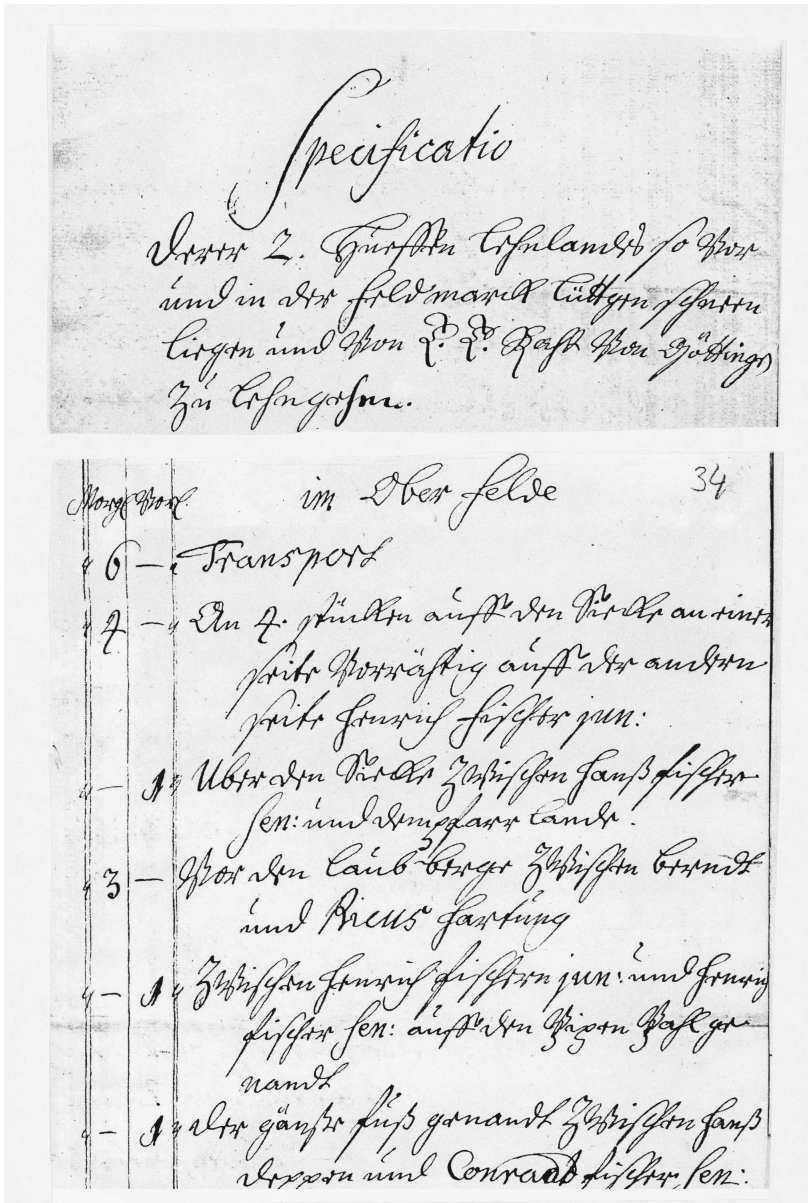 Specificatio
Derer 2. Hueffen Lehnlandes so Vor
und in der feldmarck Lüttgen schneen
liegen und Von E. E. Raht Von Göttingen
Zu Lehn gehen.
34
Morg Vorl. im Ober felde
" 6 – " Transport
" 4 – " An 4. stücken auff den Siecke an einer
seite Vorrähtig auff der andern
seite Henrich fischer jun:
" – 1 " Uber den Siecke Zwischen Hanß fischer
sen: und dem pfarr Lande.
" 3 – Vor den Laubberge Zwischen berndt
und Ricus Hartung
" – 1 " Zwischen Henrich fischern jun: und Henrig
fischer sen: auff den Pahl ge
nandt
" – 1 " der gänße fuß genandt Zwischen Hanß
deppen und Conradt fischer sen: